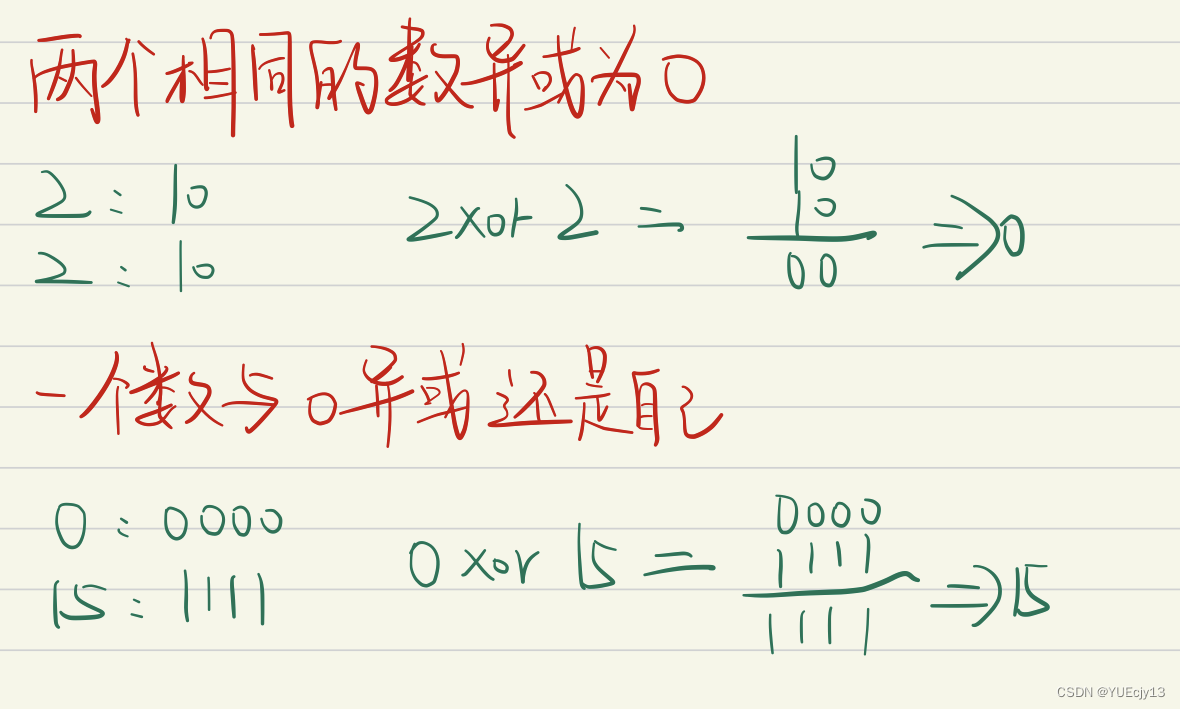 两个相同的数异或为0
2:10
2:10
2 xor 2 =
10
10
00
=>0
一个数与0异或还是自己
0:0000
15:1111
0 xor 15 =
0000
1111
1111
=>15
CSDN @YUEcjy13